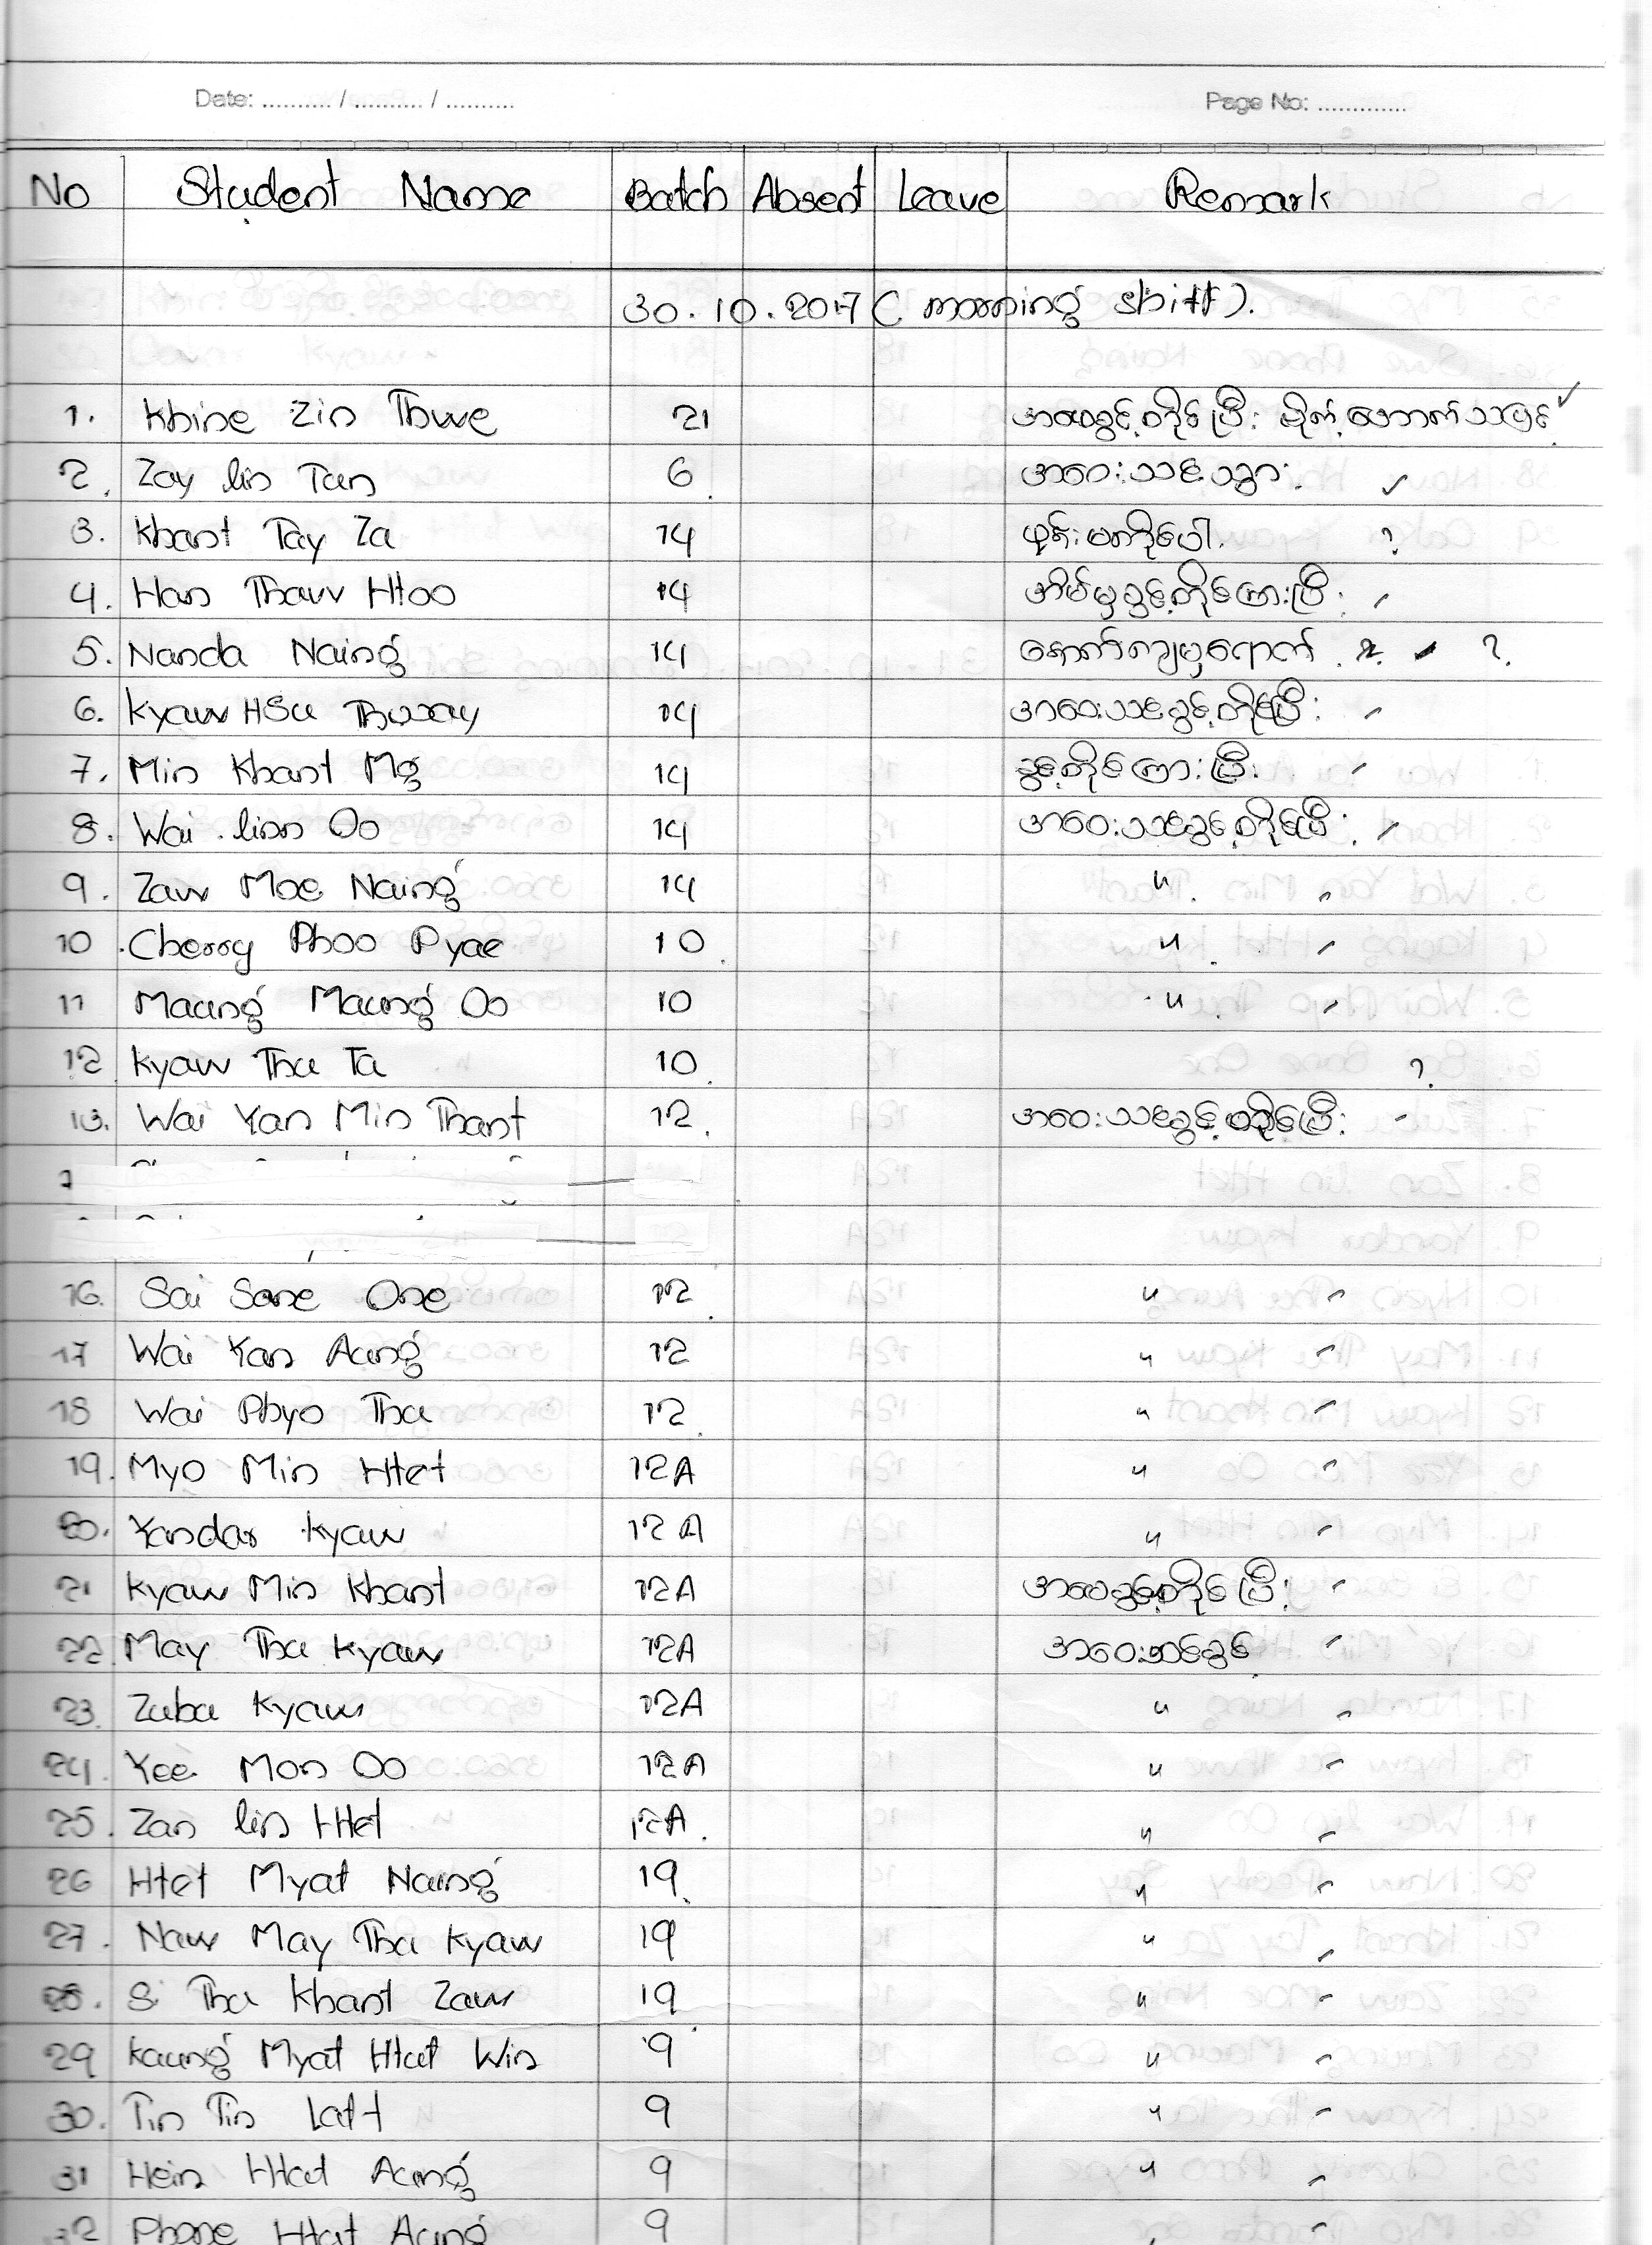 Date: .......... / .......... / ..........
Page No: .............
No Student Name Batch Absent Leave Remark
30.10.2017 ( morning shift ).
1. Khine Zin Thwe 21 ✓
2. Zay lin Tun 6 အဝေးသင်သွား ✓
3. Khant Tay Za 14 ဖုန်းမကိုင်ပေါ်. ?
4. Han Thaw Htoo 14 အိမ်မှခွင့်တိုင်ကြားပြီး
5. Nanda Naing 14 ?.
6. Kyaw HSu Thway 14 အဝေးသင်ခွင့်တိုင်ပြီး
7. Min Khant Mg 14 ခွင့်တိုင်ကြားပြီး
8. Wai linn Oo 14 အဝေးသင်ခွင့်တိုင်ပြီး
9. Zaw Moe Naing 14 "
10. Cherry Phoo Pyae 10 "
11 Maung Maung Oo 10 "
12 Kyaw Thu Ta 10 ?
13. Wai Yan Min Thant 12 အဝေးသင်ခွင့်တိုင်ပြီး
16. Sai Sone One 12 "
17 Wai Yan Aung 12 "
18 Wai Phyo Thu 12 "
19. Myo Min Htet 12A "
20. Yandar Kyaw 12A "
21 Kyaw Min Khant 12A
22 May Thu Kyaw 12A အဝေးသင်ခွင့်
23. Zuba Kyaw 12A "
24. Yee Mon Oo 12A "
25. Zan lin Htet 12A "
26 Htet Myat Naing 19 "
27. Naw May Thu Kyaw 19 "
28. Si Thu Khant Zaw 19 "
29 Kaung Myat Htut Win 9 "
30. Tin Tin Latt 9 "
31 Hein Htut Aung 9 "
32 Phone Htut Aung 9